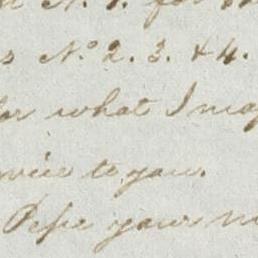 N. 1. for
s No. 2. 3. & 4.
for what I may
vice to you.
Pepe your